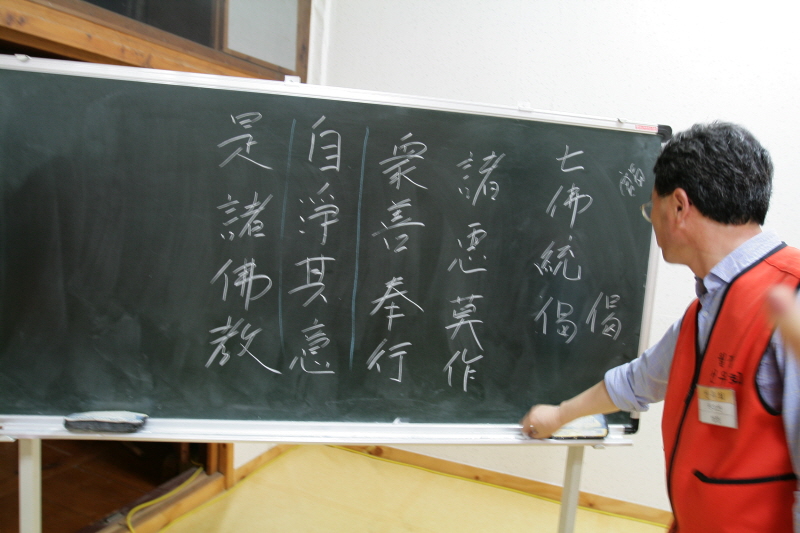 七佛統偈
偈
諸悪莫作
衆善奉行
自淨其意
是諸佛敎